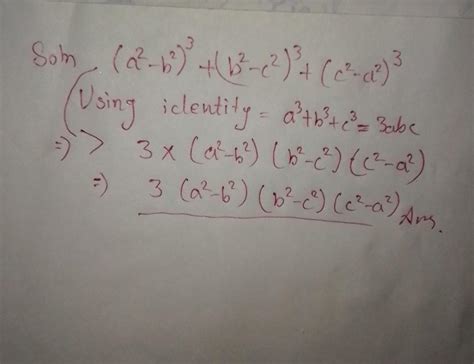 Soln. (a²-b²)³+(b²-c²)³+(c²-a²)³
(Using identity = a³+b³+c³=3abc
=> > 3 × (a²-b²) (b²-c²) (c²-a²)
=> 3 (a²-b²) (b²-c²) (c²-a²) Ans.